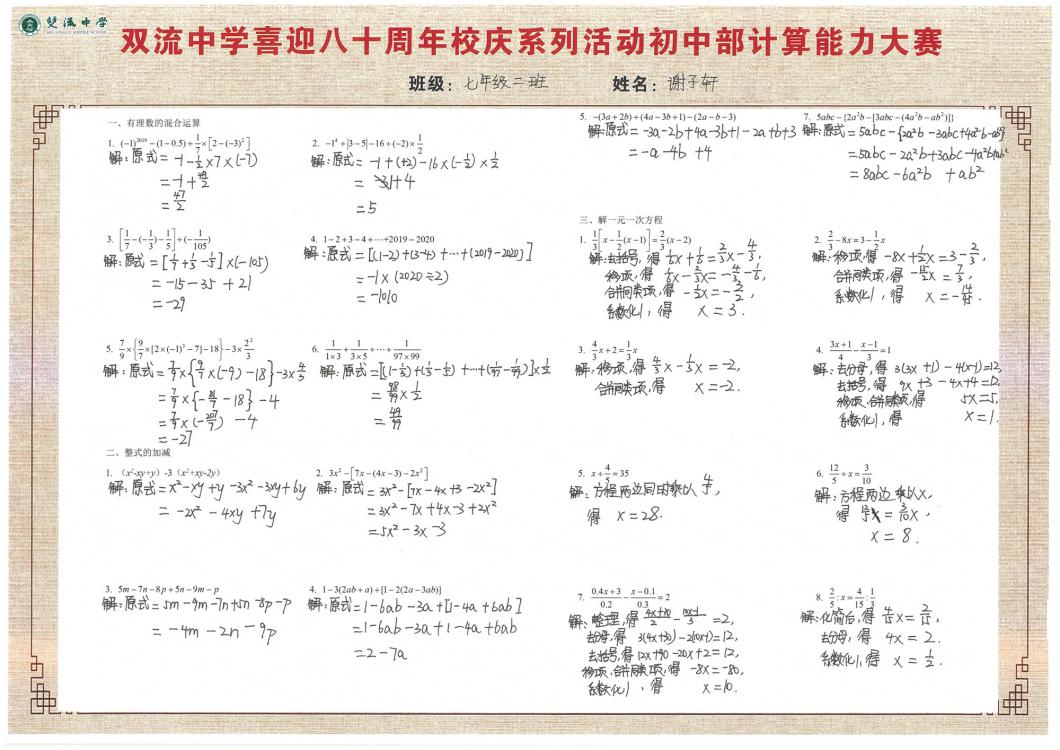 雙流中学
SHUANGLIU MIDDLE SCHOOL
双流中学喜迎八十周年校庆系列活动初中部计算能力大赛
班级：七年级二班 姓名：谢子轩
一、有理数的混合运算
1. (-1)²⁰¹⁹-(1-0.5)÷1/7×[2-(-3)²]
解：原式=-1-1/2×7×(-7)
=-1+49/2
=47/2
2. -1⁴+|3-5|-16÷(-2)×1/2
解：原式=-1+(+2)-16×(-1/2)×1/2
=1+4
=5
3. [1/7-(-1/3)-1/5]÷(-1/105)
解：原式=[1/7+1/3-1/5]×(-105)
=-15-35+21
=-29
4. 1-2+3-4+…+2019-2020
解：原式=[(1-2)+(3-4)+…+(2019-2020)]
=-1×(2020÷2)
=-1010
5. 7/9×{9/7×[2×(-1)³-7]-18}-3×2²/3
解：原式=7/9×{9/7×(-9)-18}-3×4/3
=7/9×{-81/7-18}-4
=7/9×(-207/7)-4
=-27
6. 1/(1×3)+1/(3×5)+…+1/(97×99)
解：原式=[(1-1/3)+(1/3-1/5)+…+(1/97-1/99)]×1/2
=98/99×1/2
=49/99
二、整式的加减
1. （x²-xy+y）-3（x²+xy-2y）
解：原式=x²-xy+y-3x²-3xy+6y
=-2x²-4xy+7y
2. 3x²-[7x-(4x-3)-2x²]
解：原式=3x²-[7x-4x+3-2x²]
=3x²-7x+4x-3+2x²
=5x²-3x-3
3. 5m-7n-8p+5n-9m-p
解：原式=5m-9m-7n+5n-8p-p
=-4m-2n-9p
4. 1-3(2ab+a)+[1-2(2a-3ab)]
解：原式=1-6ab-3a+[1-4a+6ab]
=1-6ab-3a+1-4a+6ab
=2-7a
5. -(3a+2b)+(4a-3b+1)-(2a-b-3)
解：原式=-3a-2b+4a-3b+1-2a+b+3
=-a-4b+4
7. 5abc-{2a²b-[3abc-(4a²b-ab²)]}
解：原式=5abc-{2a²b-3abc+4a²b-ab²}
=5abc-2a²b+3abc-4a²b+ab²
=8abc-6a²b+ab²
三、解一元一次方程
1. 1/3[x-1/2(x-1)]=2/3(x-2)
解：去括号，得1/6x+1/6=2/3x-4/3，
移项，得1/6x-2/3x=-4/3-1/6，
合并同类项，得-1/2x=-3/2，
系数化1，得x=3.
2. 2/3-8x=3-1/2x
解：移项，得-8x+1/2x=3-2/3，
合并同类项，得-15/2x=7/3，
系数化1，得x=-14/45.
3. 4/3x+2=1/3x
解：移项，得4/3x-1/3x=-2，
合并同类项，得x=-2.
4. (3x+1)/4-(x-1)/3=1
解：去分母，得3(3x+1)-4(x-1)=12，
去括号，得9x+3-4x+4=12，
移项、合并同类项，得5x=5，
系数化1，得x=1.
5. x÷4/5=35
解：方程两边同时乘以4/5，
得x=28.
6. 12/5÷x=3/10
解：方程两边乘以x，
得12/5=3/10x，
x=8.
7. (0.4x+3)/0.2-(x-0.1)/0.3=2
解：整理，得(4x+30)/2-(10x-1)/3=2，
去分母，得3(4x+30)-2(10x-1)=12，
去括号，得12x+90-20x+2=12，
移项、合并同类项，得-8x=-80，
系数化1，得x=10.
8. 2/5:x=4/15:1/3
解：化简后，得4/15x=2/15，
去分母，得4x=2.
系数化1，得x=1/2.